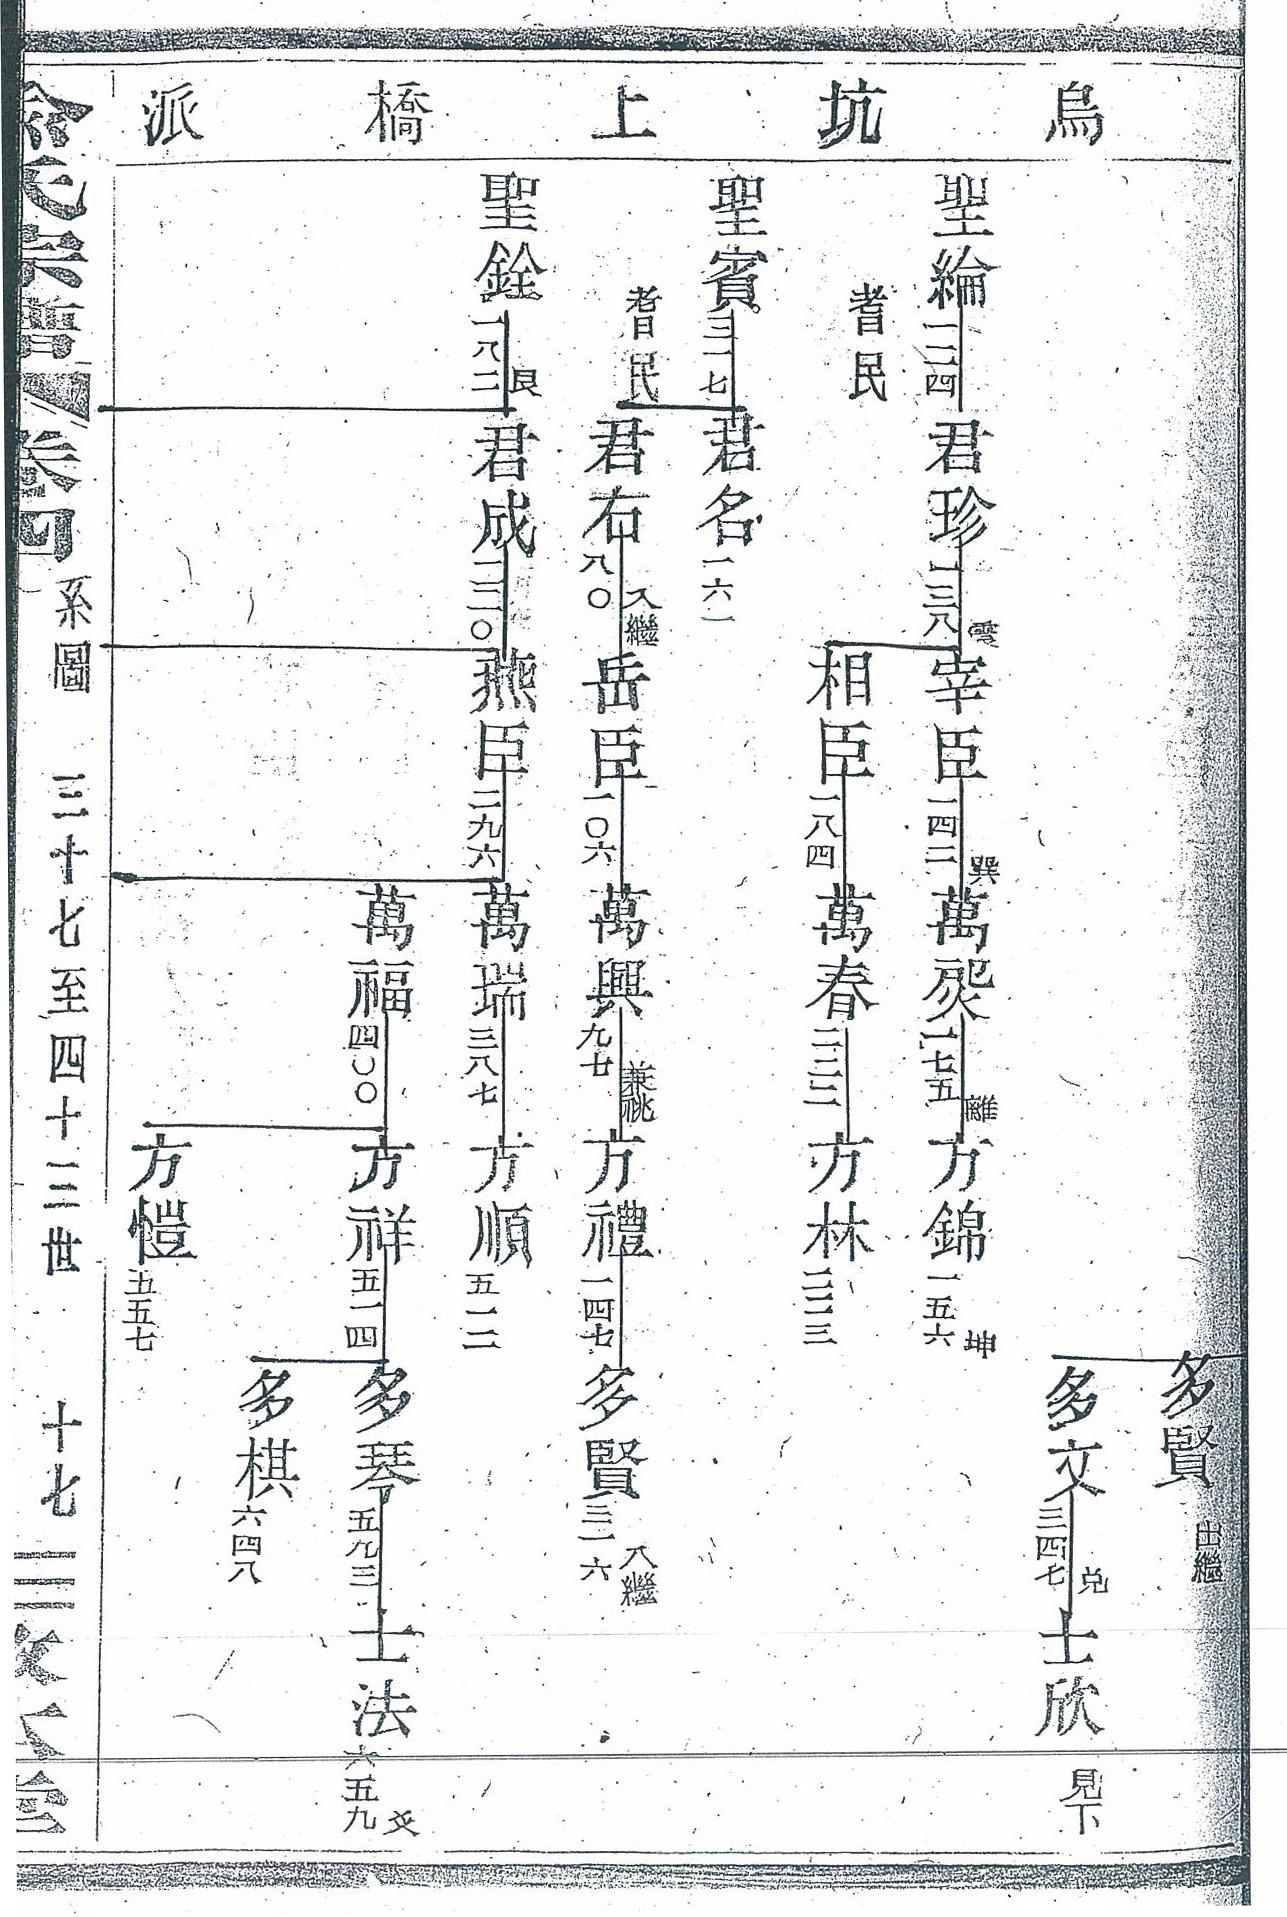 烏坑上橋派
多賢
出繼
多文
三四七
兌
士欣
見下
聖綸
一二四
君珍
一三八
雩
宰臣
一四二
巽
萬
一七五
離
方錦
一五六
坤
耆民
相臣
一八四
萬春
二三二
方林
二二三
聖賓
三一七
君名
一六一
耆民
君右
八〇
入繼
岳臣
一〇六
萬興
九七
兼祧
方禮
一四七
多賢
三一六
入繼
聖銓
一八二
艮
君成
二二〇
燕臣
二九六
萬瑞
三八七
方順
五一二
萬福
四〇〇
方祥
五一四
多琴
五九三
士法
六五九
爻
多棋
六四八
方愷
五五七
余氏宗譜 卷四
系圖
三十七至四十三世
十七